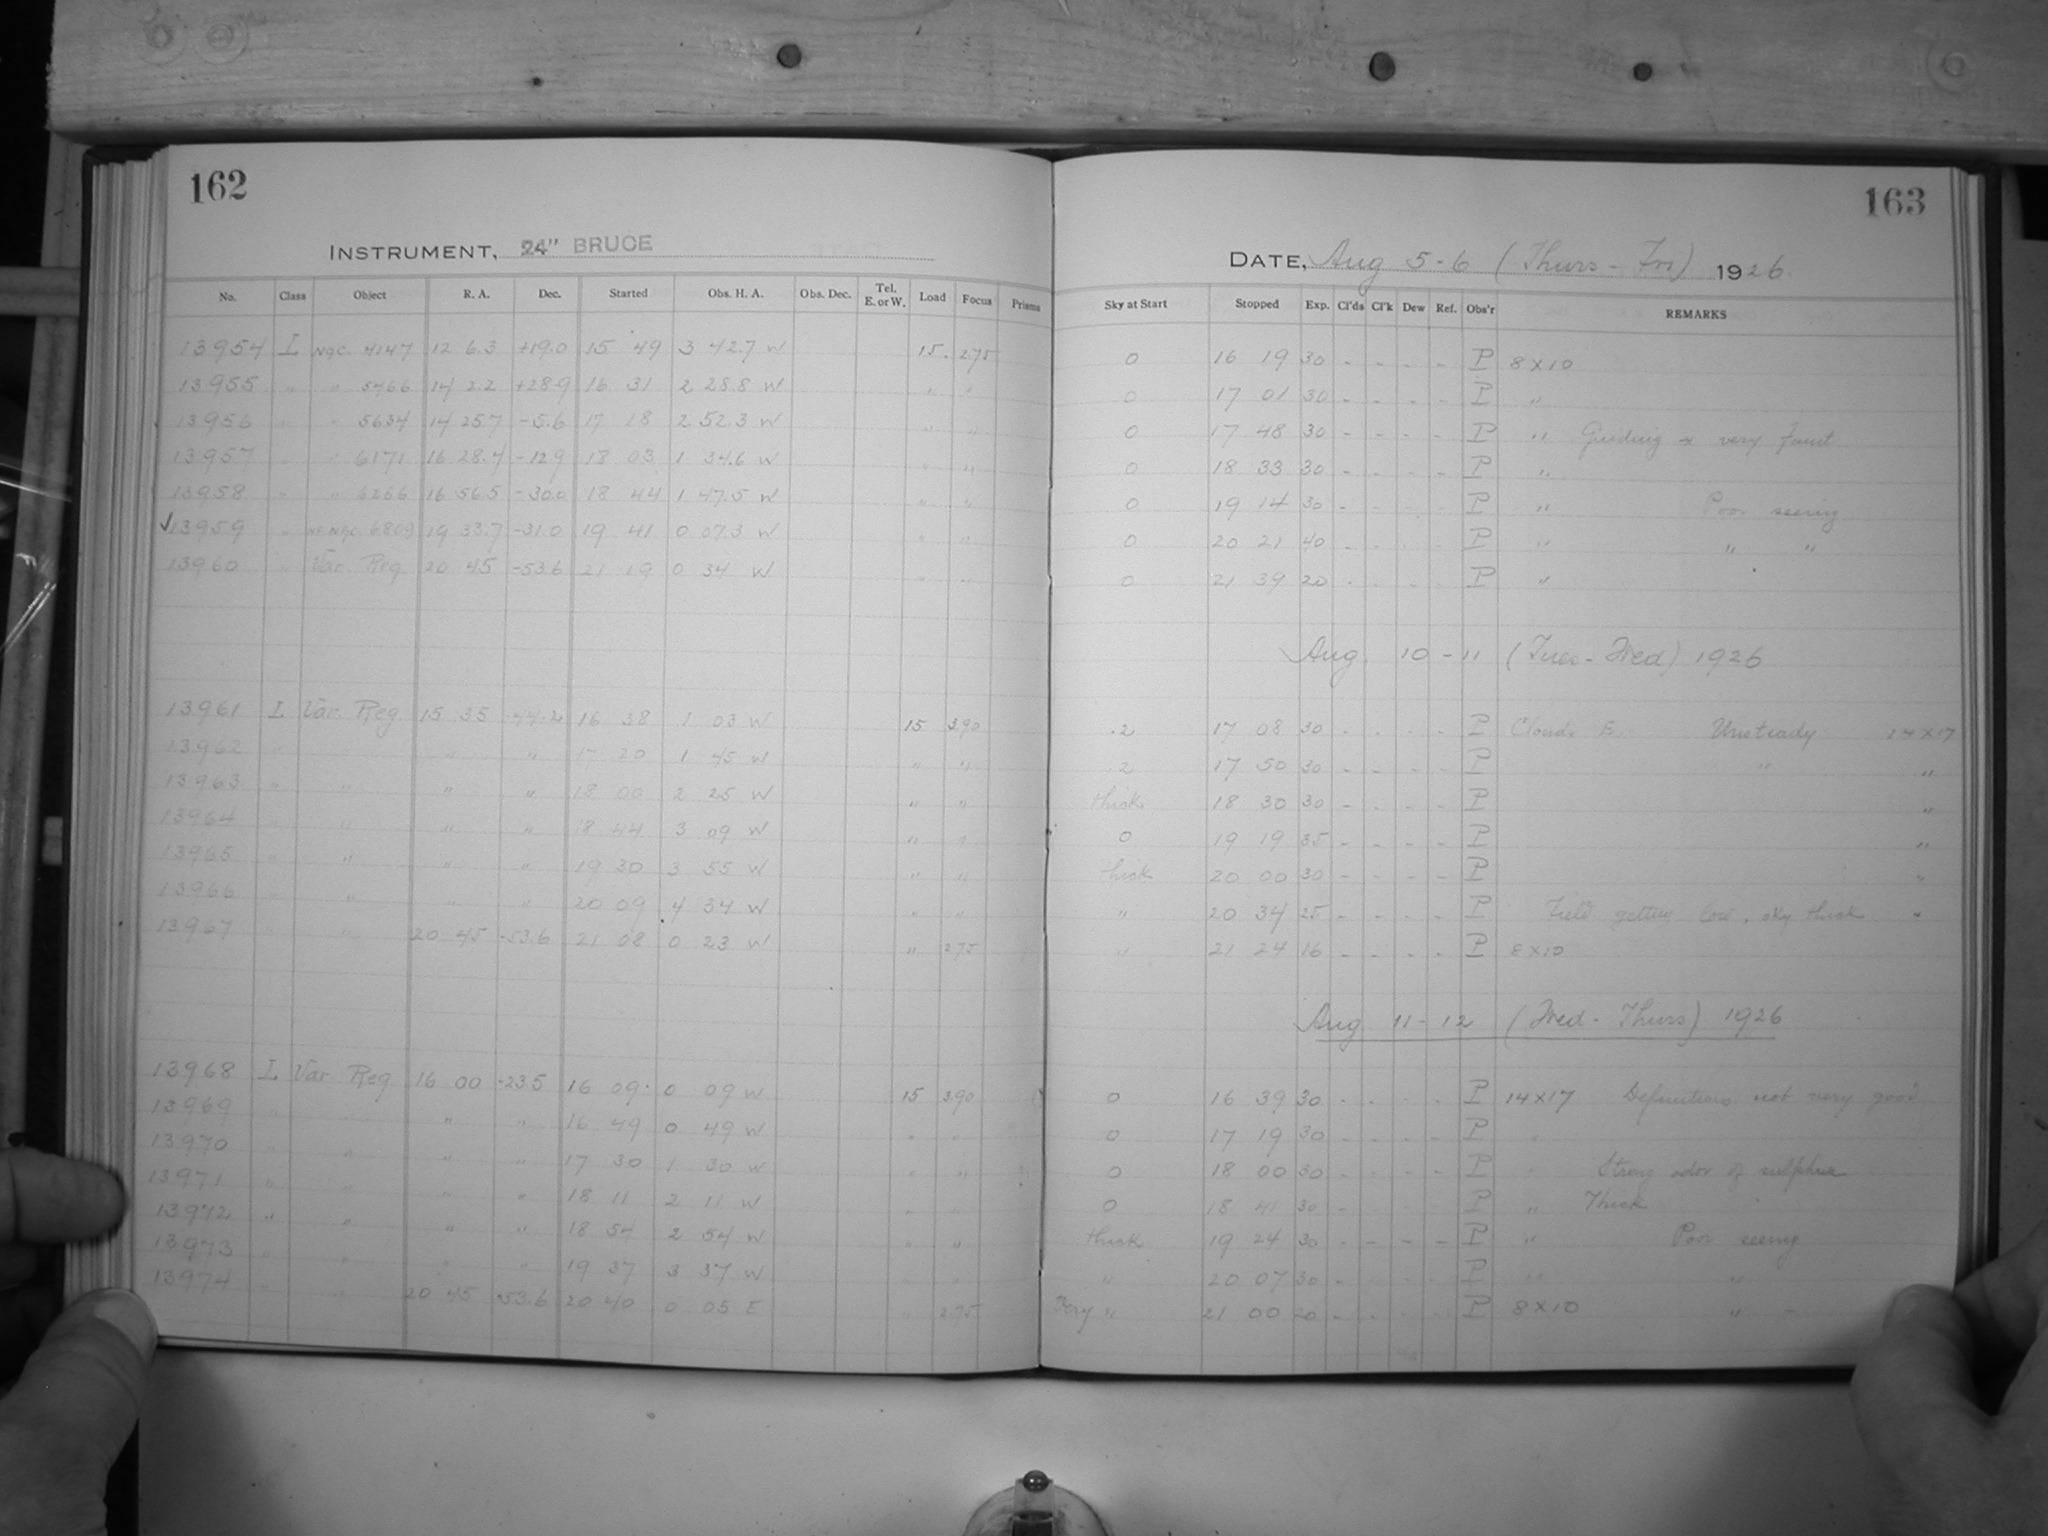 162
INSTRUMENT, 24" BRUCE
No. Class Object R. A. Dec. Started Obs. H. A. Obs. Dec. Tel. E. or W. Load Focus Prisms
13954 I NGC. 4147 12 6.3 +19.0 15 49 3 42.7 W 15. 2.75
13955 " " 5466 14 2.2 +28.9 16 31 2 28.8 W " "
13956 " " 5634 14 25.7 -5.6 17 18 2 52.3 W " "
13957 " " 6171 16 28.4 -12.9 18 03 1 34.6 W " "
13958 " " 6266 16 56.5 -30.0 18 44 1 47.5 W " "
✓13959 " NGC. 6809 19 33.7 -31.0 19 41 0 07.3 W " "
13960 " Var. Reg 20 45 -53.6 21 19 0 34 W " "
13961 I Var. Reg 15 35 -44.2 16 38 1 03 W 15 3.90
13962 " " " " 17 20 1 45 W " "
13963 " " " " 18 00 2 25 W " "
13964 " " " " 18 44 3 09 W " "
13965 " " " " 19 30 3 55 W " "
13966 " " " " 20 09 4 34 W " "
13967 " " 20 45 -53.6 21 08 0 23 W " 2.75
13968 I Var Reg 16 00 -23.5 16 09 0 09 W 15 3.90
13969 " " " " 16 49 0 49 W " "
13970 " " " " 17 30 1 30 W " "
13971 " " " " 18 11 2 11 W " "
13972 " " " " 18 54 2 54 W " "
13973 " " " " 19 37 3 37 W " "
13974 " " 20 45 -53.6 20 40 0 05 E " 2.75
163
DATE, Aug 5-6 (Thurs - Fri) 1926
Sky at Start Stopped Exp. Cl'ds Cl'k Dew Ref. Obs'r REMARKS
0 16 19 30 - - - - P 8 x 10
0 17 01 30 - - - - P "
0 17 48 30 - - - - P " Guiding * very faint
0 18 33 30 - - - - P "
0 19 14 30 - - - - P " Poor seeing
0 20 21 40 - - - - P " " "
0 21 39 20 - - - - P "
Aug. 10 - 11 (Tues - Wed) 1926
.2 17 08 30 - - - - P Clouds E. Unsteady 14 x 17
.2 17 50 30 - - - - P " "
thick 18 30 30 - - - - P "
0 19 19 35 - - - - P "
thick 20 00 30 - - - - P "
" 20 34 25 - - - - P Field getting low, sky thick "
" 21 24 16 - - - - P 8 x 10
Aug 11 - 12 (Wed - Thurs) 1926
0 16 39 30 - - - - P 14 x 17 Definition not very good
0 17 19 30 - - - - P "
0 18 00 30 - - - - P " Strong odor of sulphur
0 18 41 30 - - - - P " Thick
thick 19 24 30 - - - - P " Poor seeing
" 20 07 30 - - - - P " "
Very " 21 00 20 - - - - P 8 x 10 " -